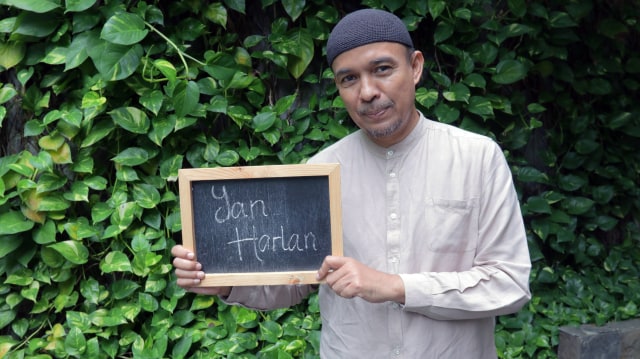 Yan
Harlan